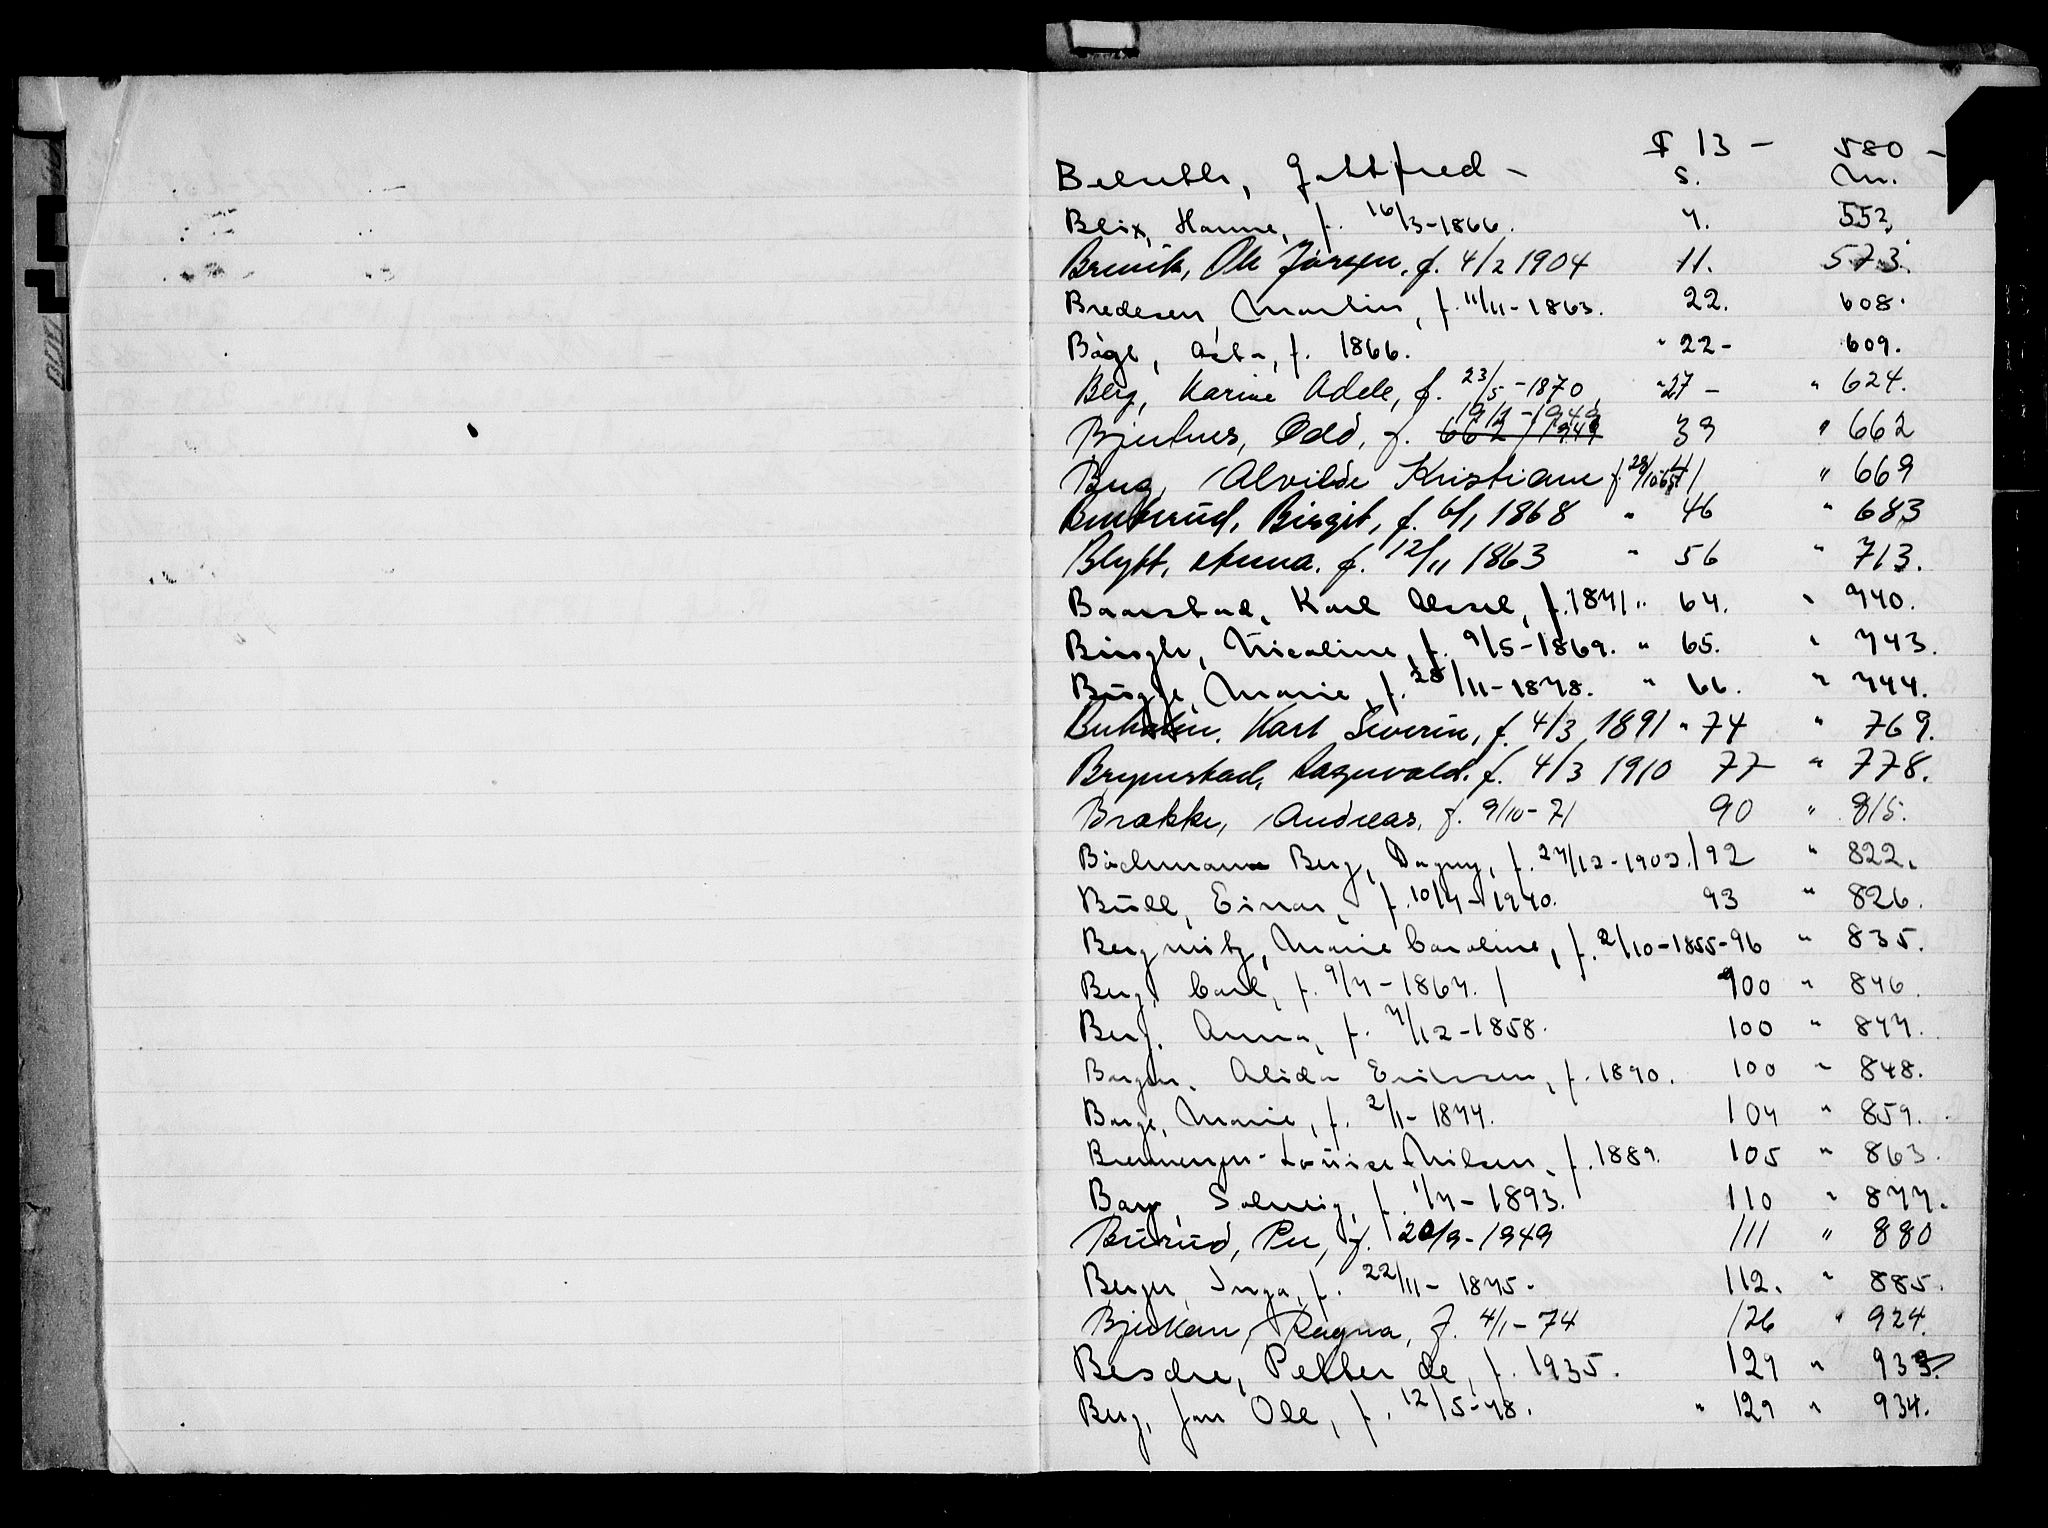 $ 13 - 580 -
Gottfred - S. M.
Blix, Hanne, f. 16/3-1866. 7. 552.
Brevik, Ole Jørgen. f. 4/2 1904 11. 573.
Bredesen, Martin, f. 11/11-1863. 22. 608.
Bøgh, Asta, f. 1866. " 22 - 609.
Berg, Karine Adele, f. 23/5-1870, " 27 - " 624.
Bjertnes, Odd, f. 19/2-1949 39 " 662
Berg, Alvilde Kristiane f. 41 " 669
Birgit, f. 6/1 1868 " 46 " 683
Blytt, Anna. f. 12/11 1863 " 56 " 713.
Karl Aksel, f. 1871 " 64. " 740.
Nicoline, f. 9/5-1869. " 65. " 743.
Bugge, Marie, f. 28/11-1878. " 66. " 744.
Karl Severin, f. 4/3 1891 " 74 " 769.
Brynestad, Ragnvald. f. 4/3 1910 77 " 778.
Brække, Andreas, f. 9/10-71 90 " 815.
Bächmann Berg, Dagny, f. 27/12-1902. 92 " 822.
Bull, Einar, f. 10/7-1940. 93 " 826.
Bergwitz, Marie Caroline, f. 2/10-1855-96 " 835.
Berg, Carl, f. 9/7-1867. 100 " 846.
Berg, Anna, f. 7/12-1858. 100 " 847.
Alida Eriksen, f. 1890. 100 " 848.
Borge, Marie, f. 2/1-1877. 104 " 859.
Brennengen - Louise Nilsen, f. 1889. 105 " 863.
Solveig, f. 1/7-1893. 110 " 877.
Burud, Per, f. 20/9-1949 111 " 880
Berger, Inga, f. 22/11-1875. 112. " 885.
Bjerkan, Ragna, f. 4/1-74 126 " 924.
Besche, Petter de, f. 1935. 129 " 933.
Berg, Jan Ole, f. 12/5-48. " 129 " 934.